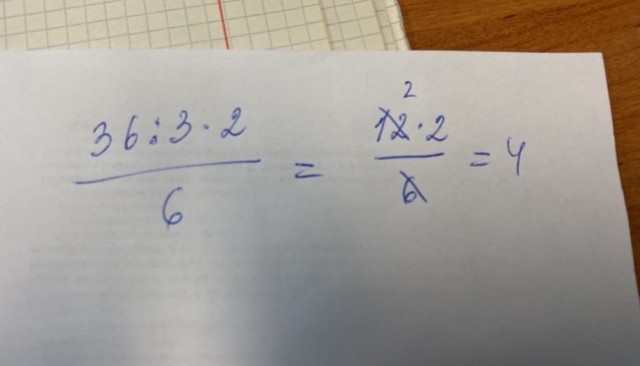 36:3·2 / 6 = 12·2 / 6 = 4
2